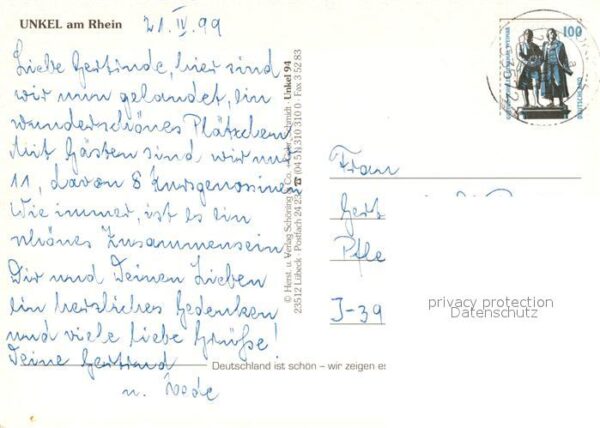 UNKEL am Rhein
21. IV. 99
Liebe Gertinde, hier sind
wir nun gelandet, ein
wunderschönes Plätzchen
Mit Gästen sind wir nur
11, davon 8 Kursgenossinnen
Wie immer, ist es ein
schönes Zusammensein
Dir und Deinen Lieben
ein herzliches Gedenken
und viele liebe Grüße!
Deine Gertrud
u.
© Herst. u. Verlag Schöning & Co. + Gebr. Schmidt · Unkel 94
23512 Lübeck · Postfach 24 23 ☎ (04 51) 310 310 0 · Fax 3 52 83
Deutschland ist schön – wir zeigen es
100
DEUTSCHE
Frau
Gert
Pfle
I-39
privacy protection
Datenschutz